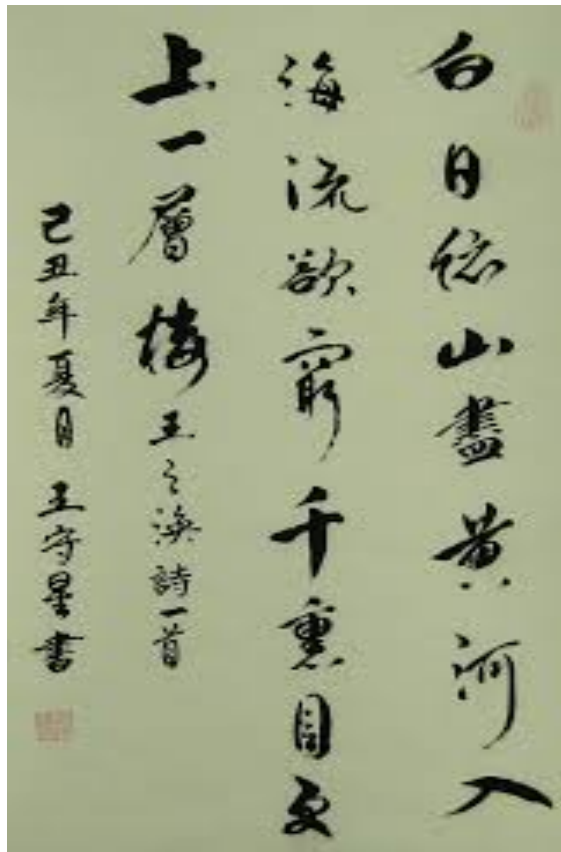 白日依山盡黃河入
海流欲窮千裏目更
上一層樓 王之渙詩一首
己丑年夏月 王守星書